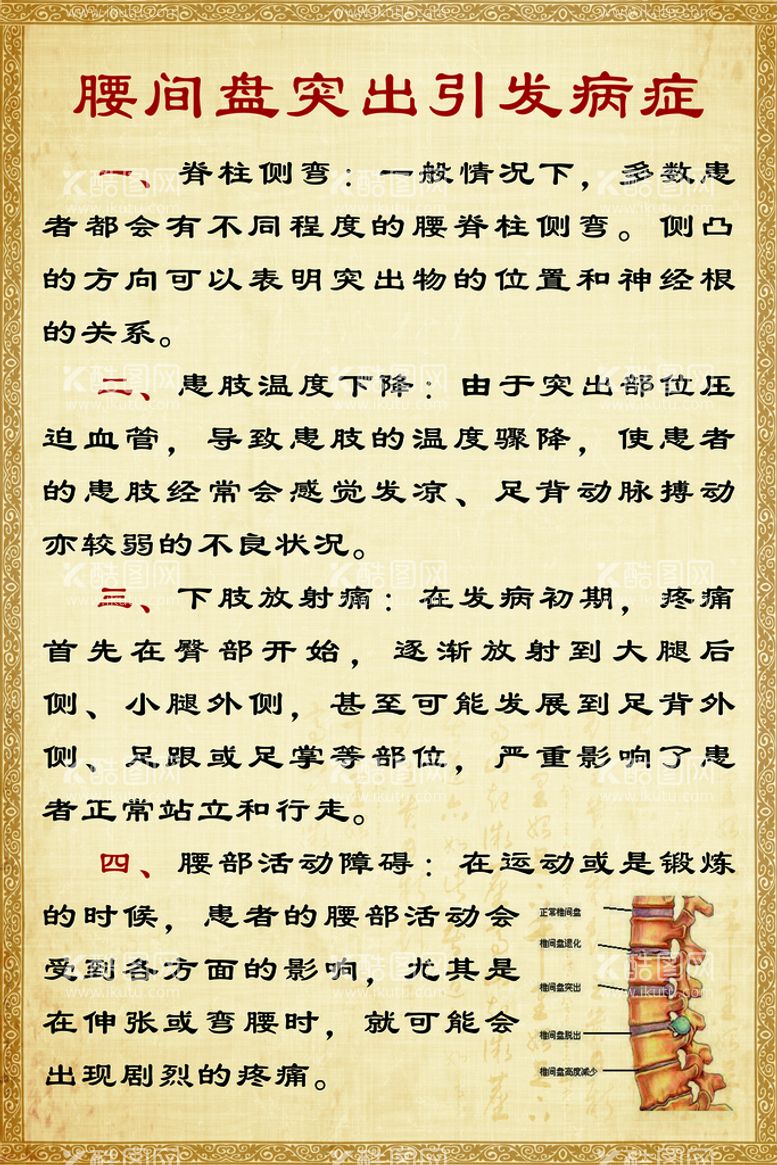 腰间盘突出引发病症
一、脊柱侧弯：一般情况下，多数患
者都会有不同程度的腰脊柱侧弯。侧凸
的方向可以表明突出物的位置和神经根
的关系。
二、患肢温度下降：由于突出部位压
迫血管，导致患肢的温度骤降，使患者
的患肢经常会感觉发凉、足背动脉搏动
亦较弱的不良状况。
三、下肢放射痛：在发病初期，疼痛
首先在臀部开始，逐渐放射到大腿后
侧、小腿外侧，甚至可能发展到足背外
侧、足跟或足掌等部位，严重影响了患
者正常站立和行走。
四、腰部活动障碍：在运动或是锻炼
的时候，患者的腰部活动会
受到各方面的影响，尤其是
在伸张或弯腰时，就可能会
出现剧烈的疼痛。
正常椎间盘
椎间盘退化
椎间盘突出
椎间盘脱出
椎间盘高度减少
酷图网
www.ikutu.com